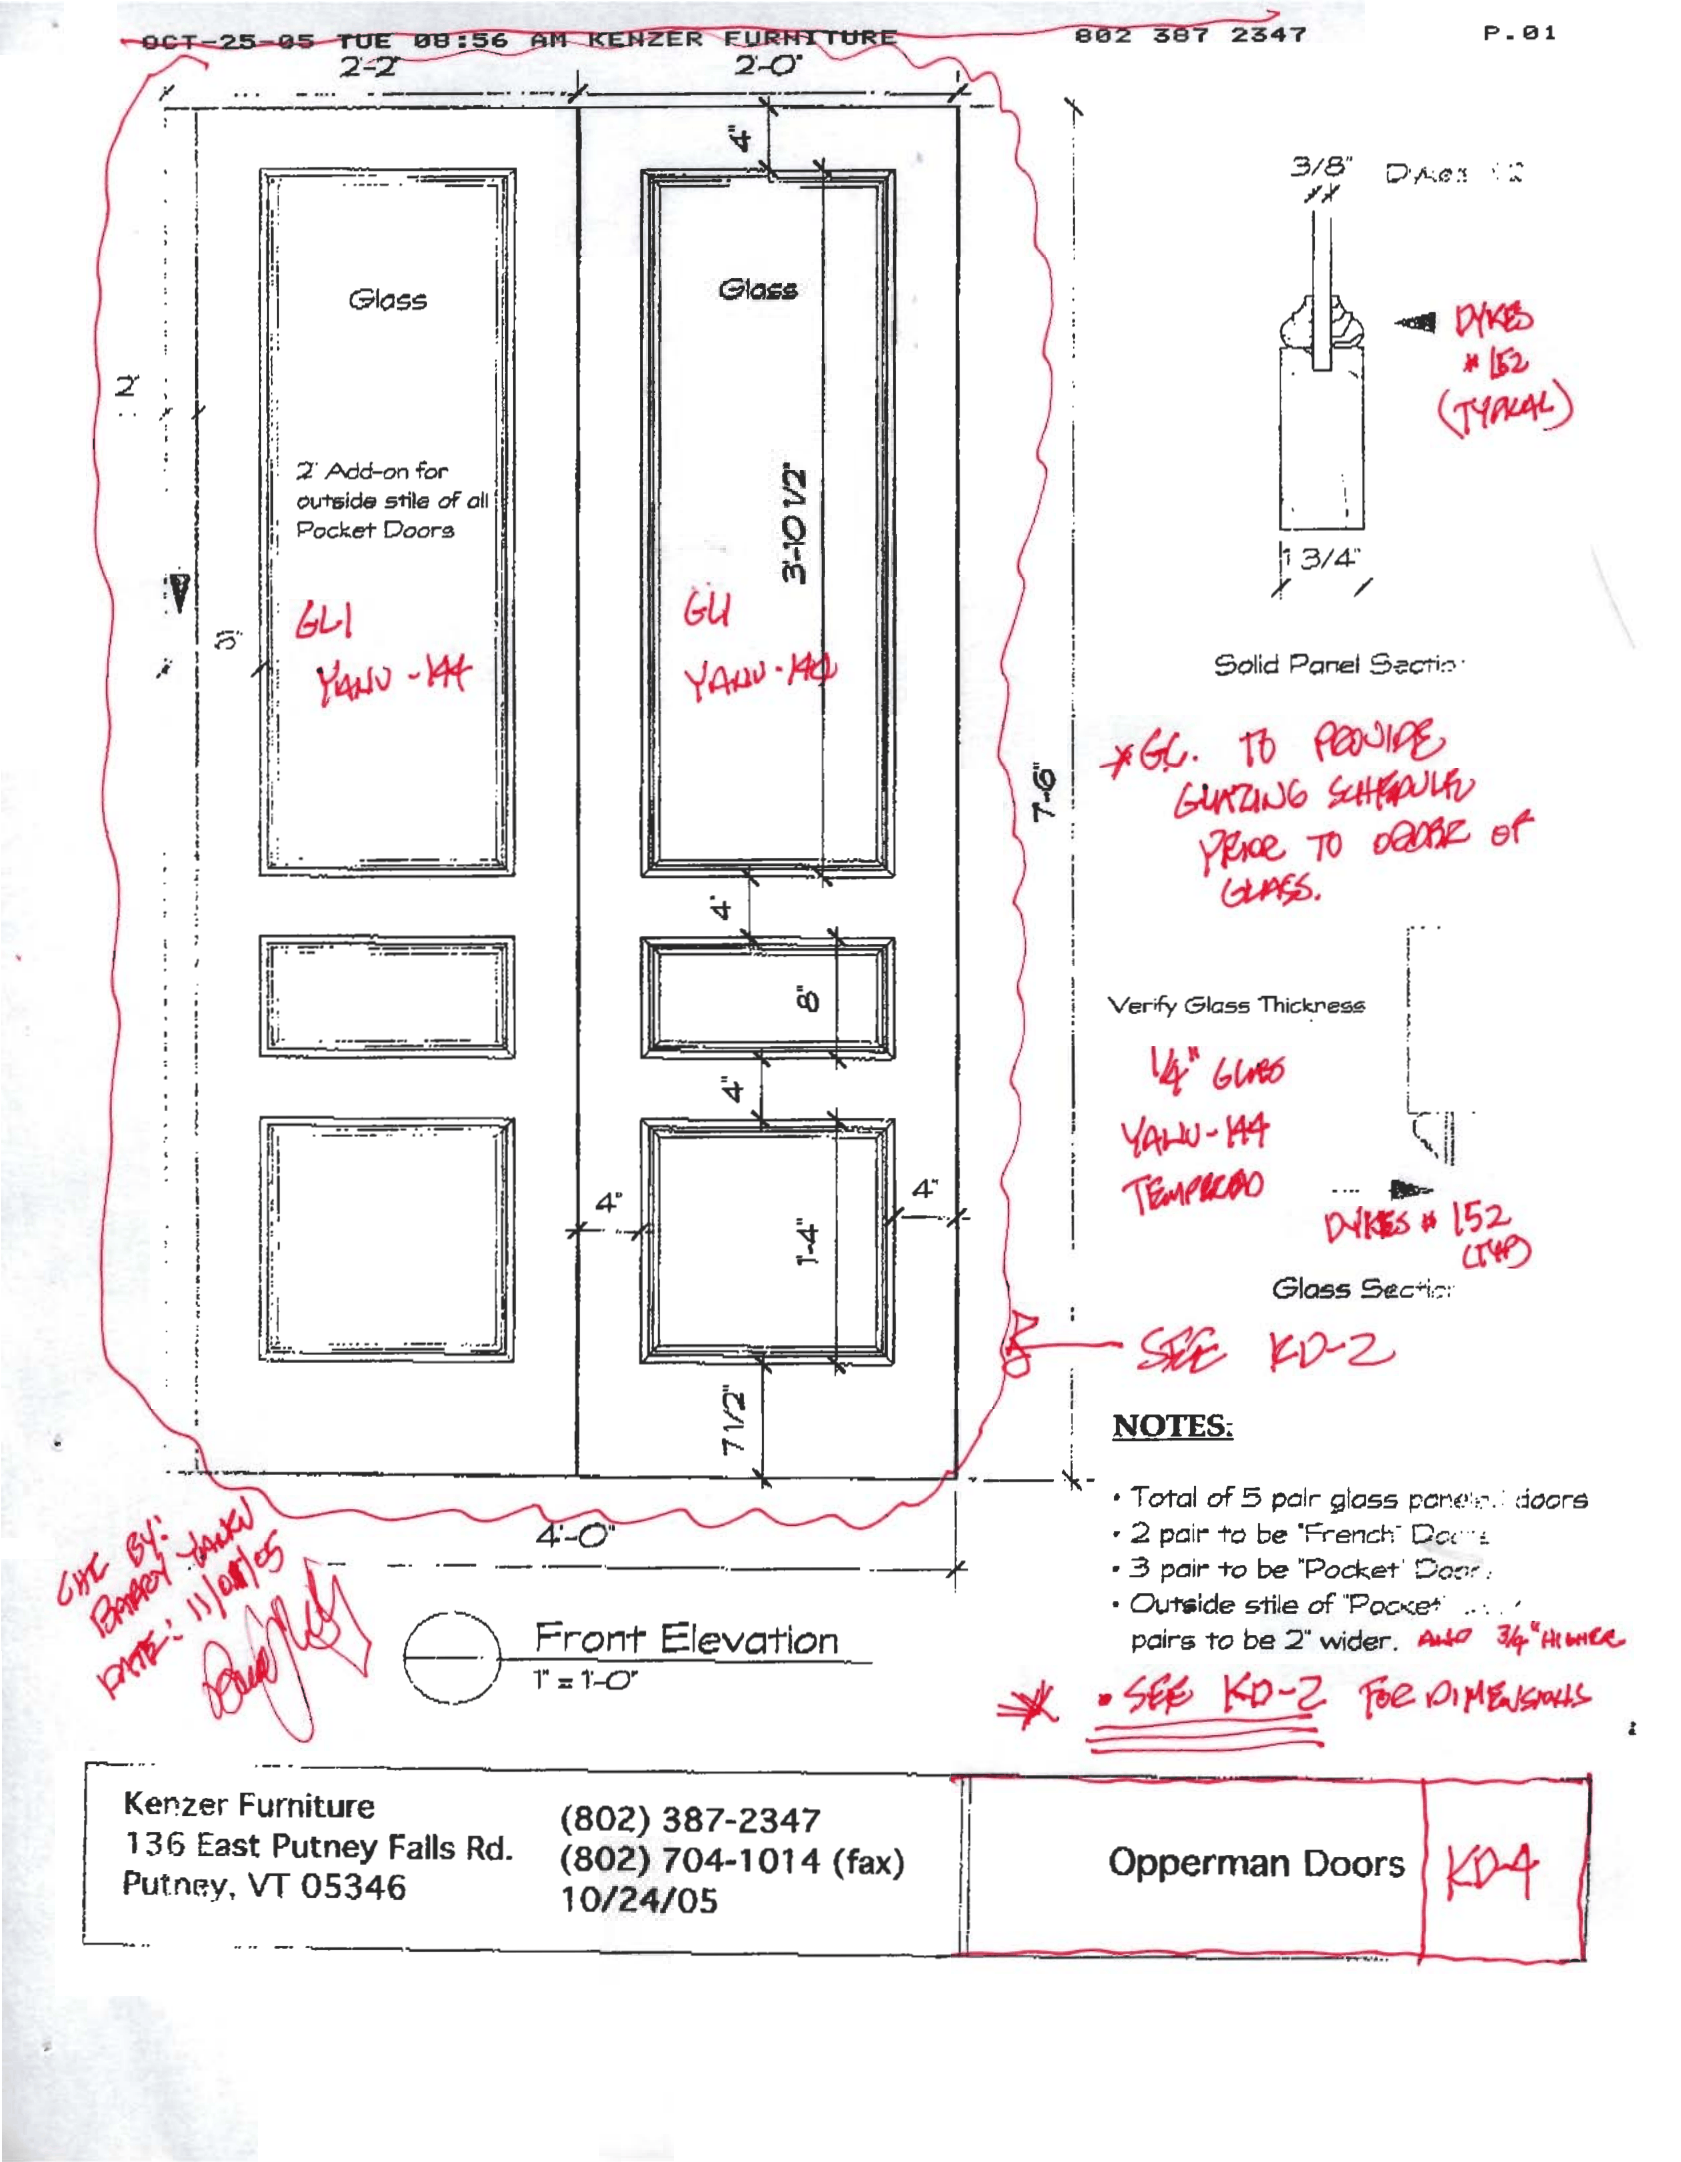 OCT-25-05 TUE 08:56 AM KENZER FURNITURE 802 387 2347 P.01
2'-2" 2'-0"
4"
3/8" Dykes
Glass Glass
DYKES
# 152
(TYPICAL)
2"
2" Add-on for
outside stile of all
Pocket Doors
3'-10 1/2"
1 3/4"
GL1 GL1
Solid Panel Section
*G.C. TO PROVIDE
GLAZING SCHEDULE
PRIOR TO ORDER OF
GLASS.
7'-6"
4"
8"
Verify Glass Thickness
1/4" GLASS
TEMPERED
4"
4" 4"
1'-4"
DYKES # 152
(TYP)
Glass Section
SEE KD-2
7 1/2"
NOTES:
• Total of 5 pair glass doors
• 2 pair to be "French" Doors
• 3 pair to be "Pocket" Doors
• Outside stile of "Pocket"
pairs to be 2" wider. AND 3/4" HIGHER
• SEE KD-2 FOR DIMENSIONS
4'-0"
BY:
BARRY
DATE: 11/
Front Elevation
1" = 1'-0"
Kenzer Furniture
136 East Putney Falls Rd.
Putney, VT 05346
(802) 387-2347
(802) 704-1014 (fax)
10/24/05
Opperman Doors
KD-4